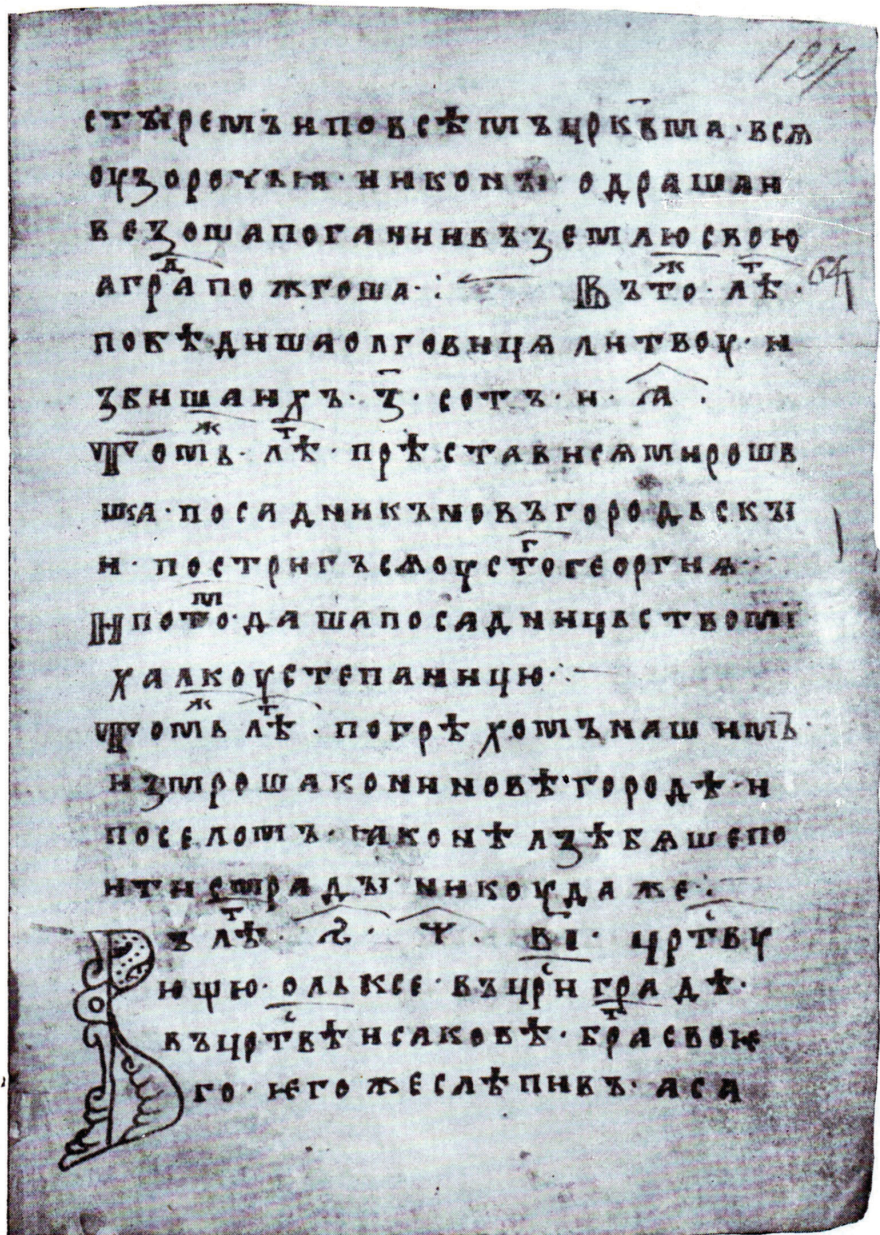 127
стъіремъ и по всѣмъ цркв҃ма · вся
оузорочья · и иконъі · одраша и
везоша погании въ землю свою
а гра̑д пожгоша · : Въ тоⷤ · лѣⷮ ·
64
побѣдиша олговиця литвоу · и
збиша ихъ · з҃ · сотъ · и · ҂а ·
Томьⷤ · лѣⷮ · прѣставися мирошь
шка · посадникъ новъгородьскъі
и · постригъся оу стоⷢ георгия ·
И потоⷨ · даша посадницьство ми
халкоу степаницю · :
Томьⷤ лѣⷮ · по грѣхомъ нашимъ ·
измроша кони новѣгородѣ · и
по селомъ · яко не лзѣ бяше по
ити смрадъі никоудаже :
Въ лѣⷮ · ҂ѕ · ѱ · в҃і · црⷭ҇твоу
ющю · ольксе · въ црⷭ҇и градѣ ·
въ црⷭ҇твѣ исаковѣ · браⷮ свое
го · ѥгоже слѣпивъ · а са